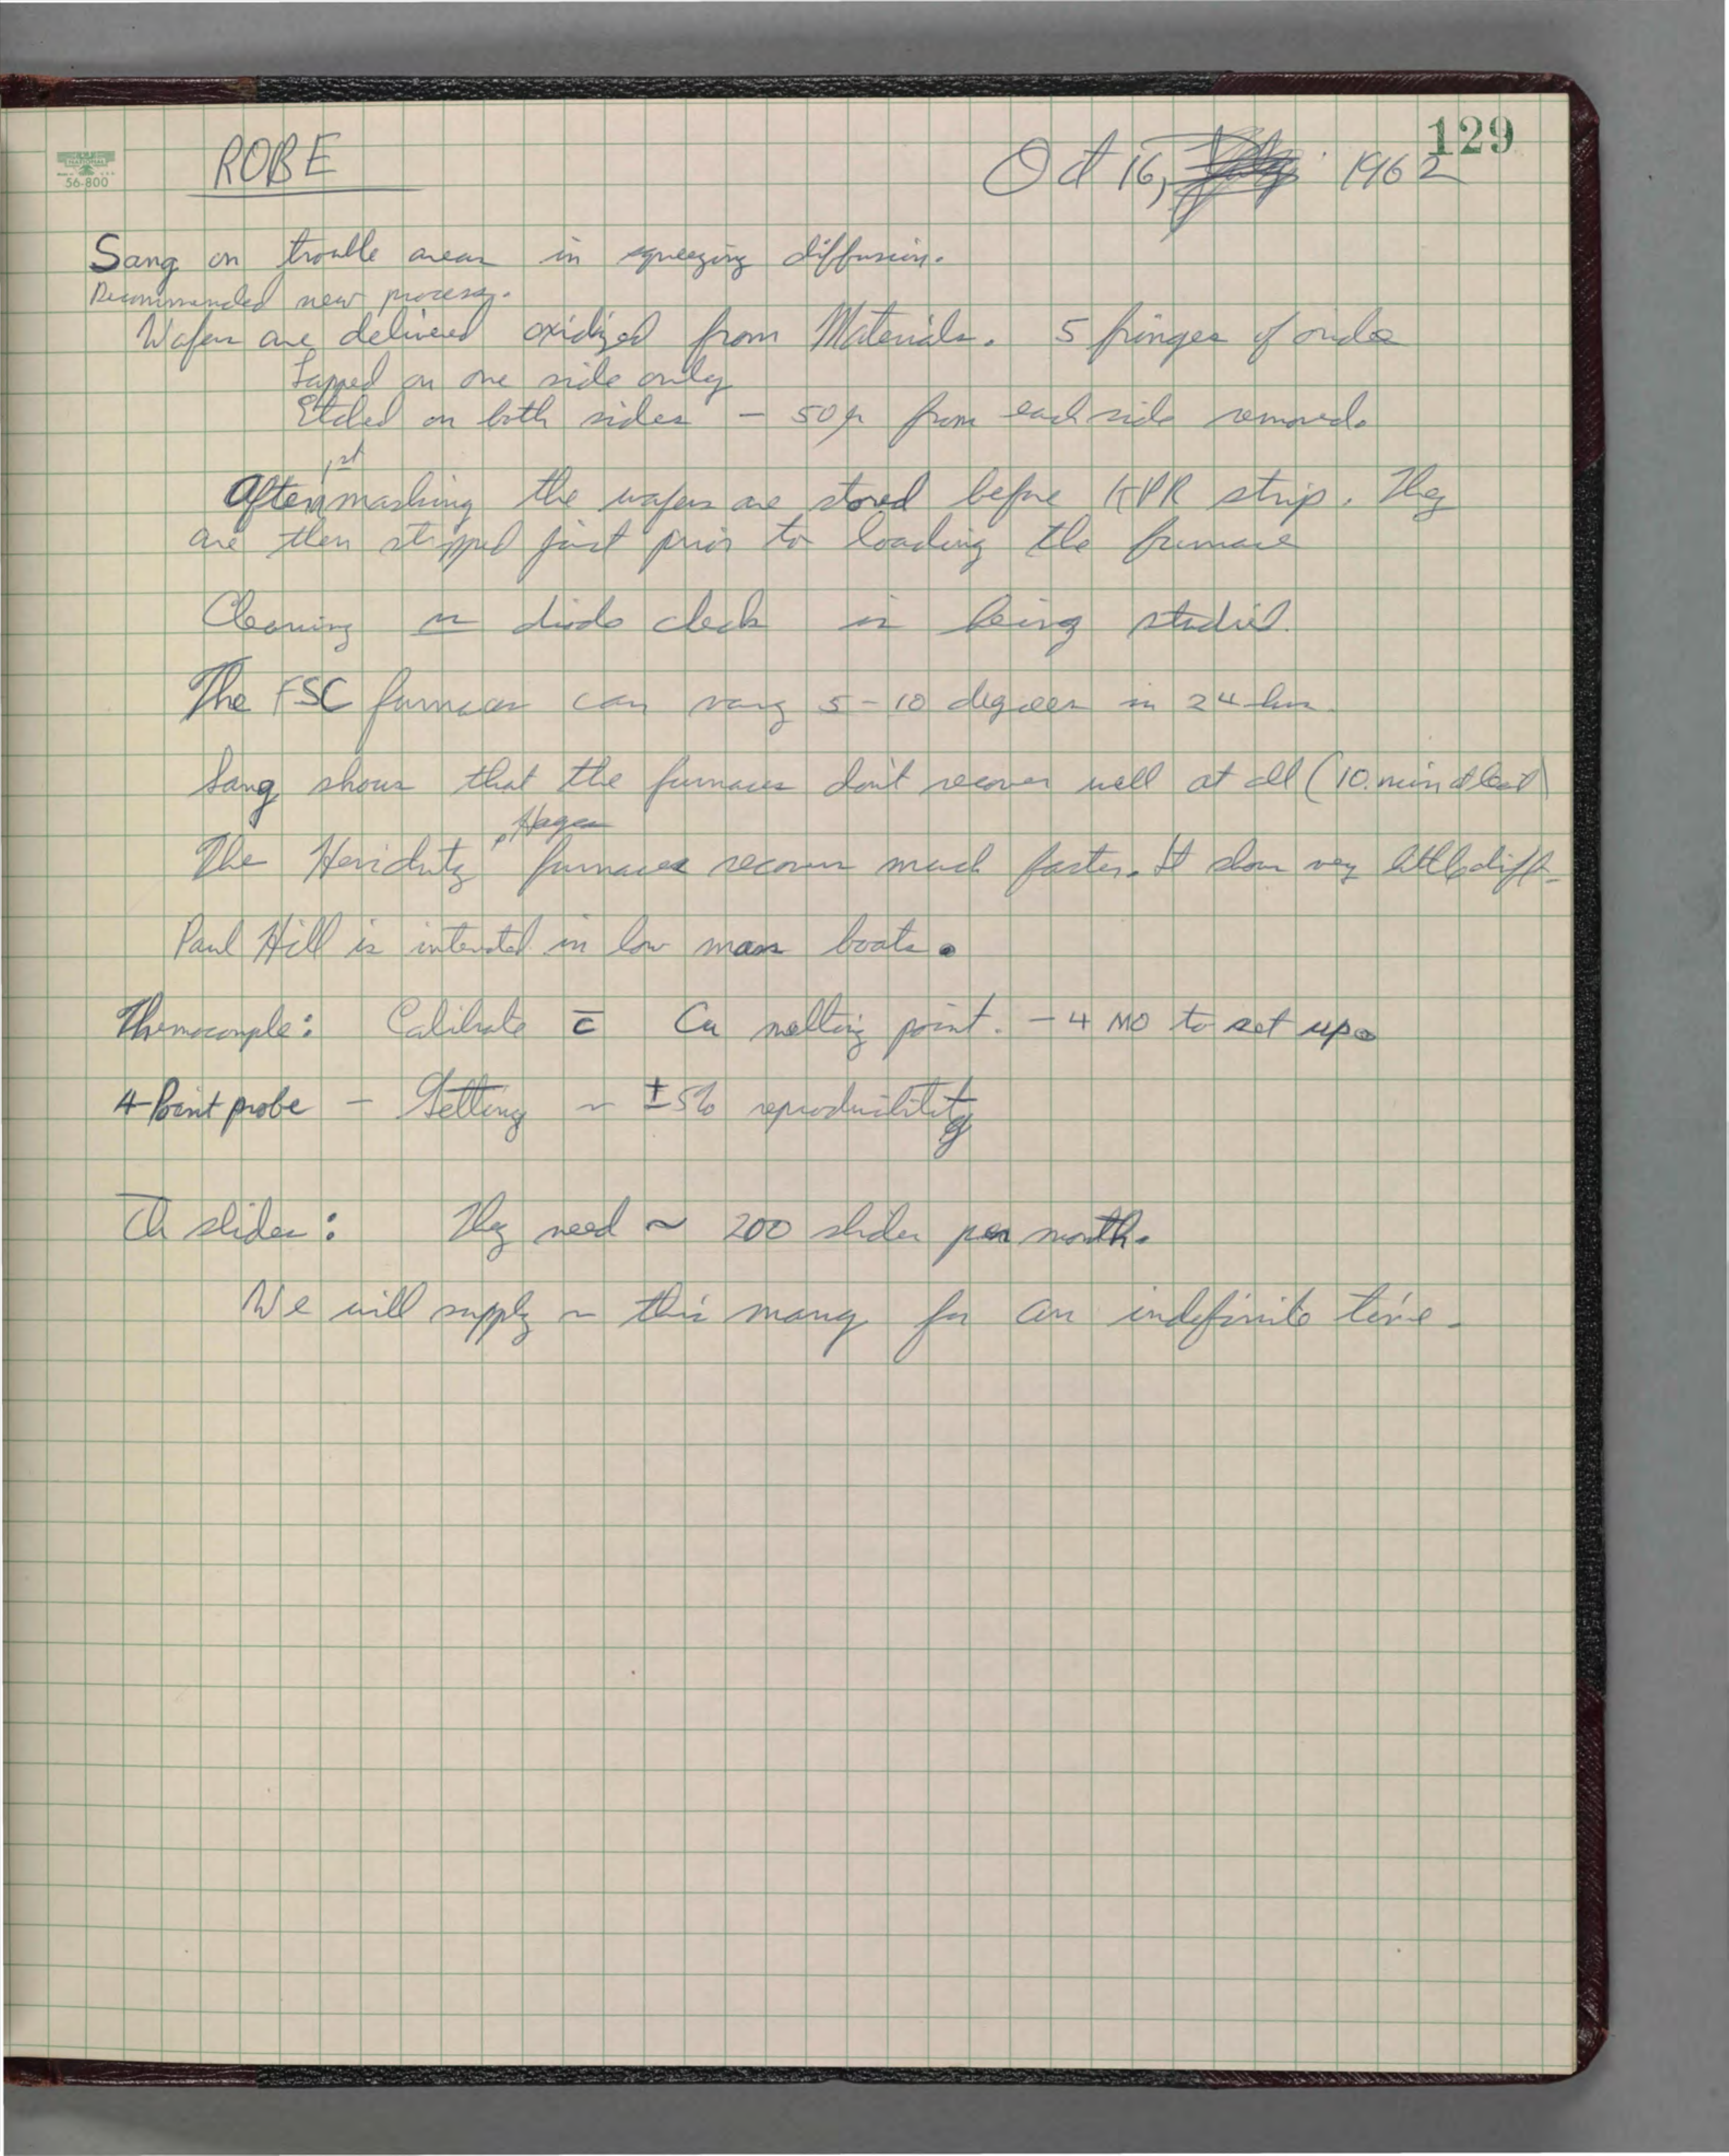 129
NATIONAL
56-800
ROBE Oct 16, 1962
Sang on trouble areas in squeezing diffusion.
Recommended new process.
Wafers are delivered oxidized from Materials. 5 fringes of oxide
Lapped on one side only
Etched on both sides - 50μ from each side removed.
1st
After masking the wafers are stored before KPR strip. They
are then stripped just prior to loading the furnace
Cleaning diode check is being studied.
The FSC furnaces can vary 5-10 degrees in 24 hrs.
Sang shows that the furnaces don't recover well at all (10 min at least)
, Hagen
The furnaces recover much faster. It shows very little diff.
Paul Hill is interested in low mass boats.
Thermocouple: Calibrate c̄ Cu melting point. - 4 MO to set up.
4-Point probe - Getting ~ ±5% reproducibility
slides: They need ~ 200 slides per month.
We will supply ~ this many for an indefinite time.